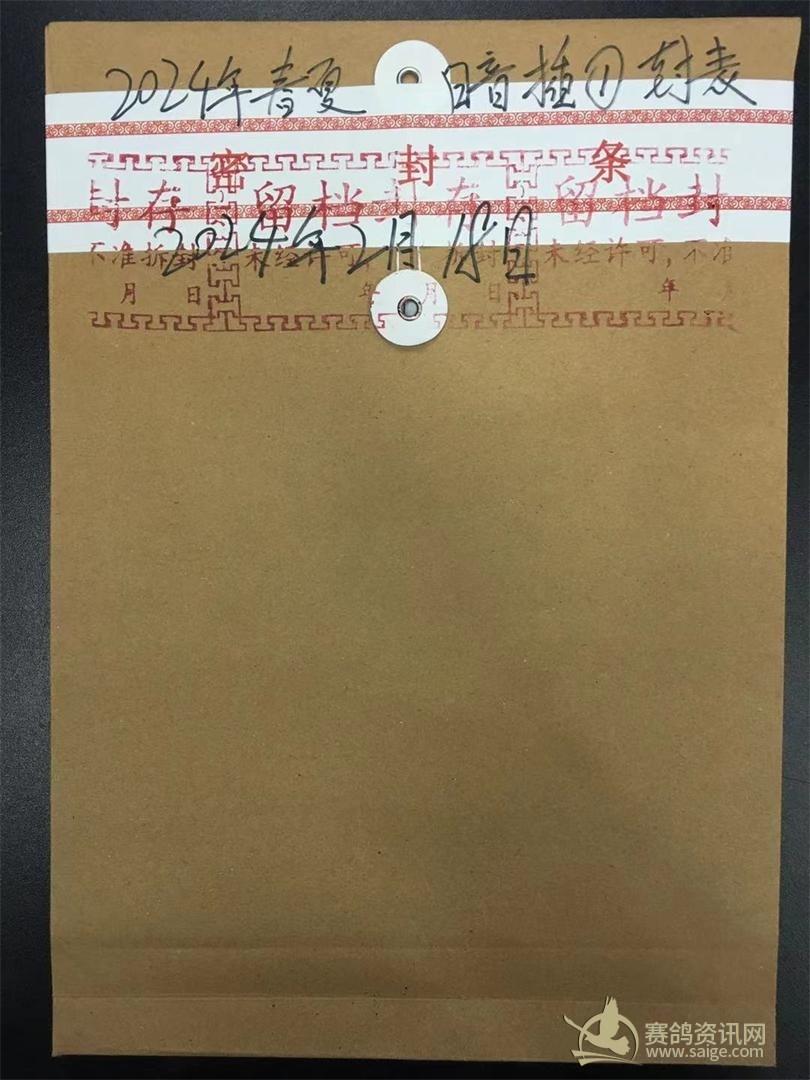 2024年春夏 暗插①封表
密 封 条
封存 留档封存 留档封
2024年2月18日
不准拆封 未经许可, 拆封 未经许可,不准
月 日 年 月 日 年 月
赛鸽资讯网
www.saige.com